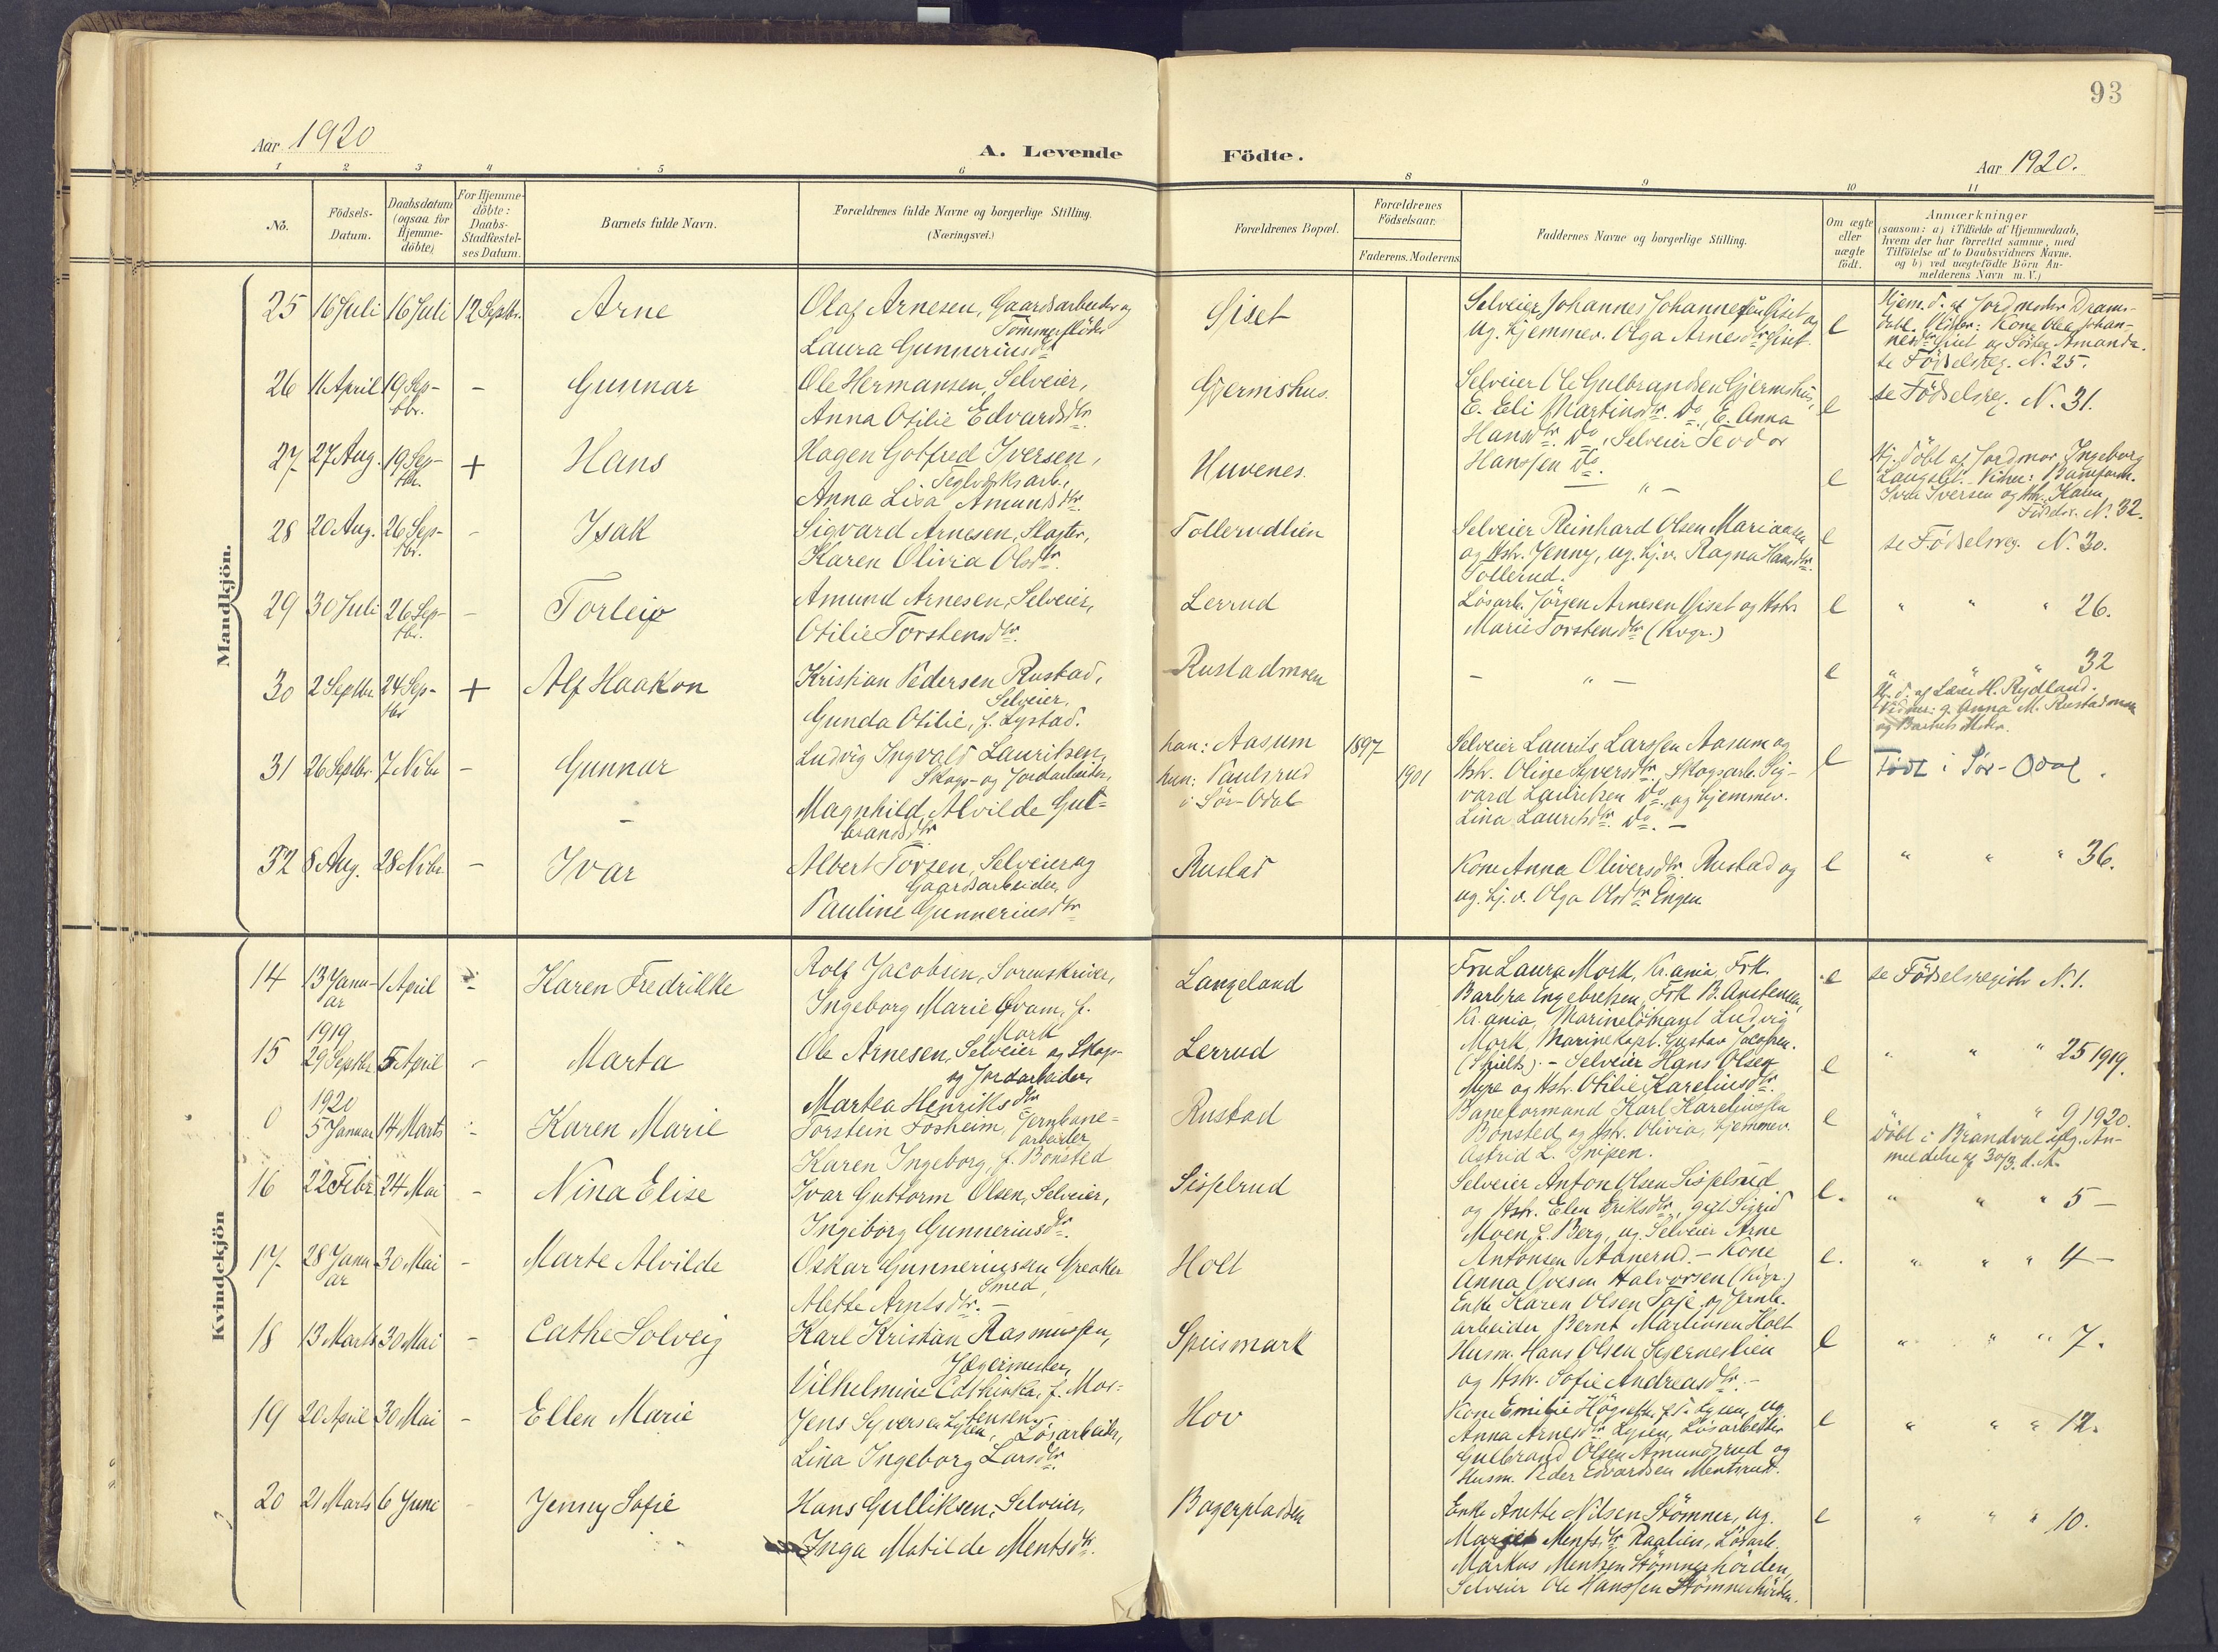 93
Aar 1920
A. Levende Födte.
Aar 1920.
1 2 3 4 5 6 8 9 10 11
No.
Födsels-Datum.
Daabsdatum (ogsaa for Hjemme-döbte)
For Hjemme-döbte: Daabs-Stadfæstel-ses Datum.
Barnets fulde Navn.
Forældrenes fulde Navne og borgerlige Stilling. (Næringsvei.)
Forældrenes Bopæl.
Forældrenes Födselsaar.
Faderens. Moderens
Faddernes Navne og borgerlige Stilling.
Om ægte eller uægte födt.
Anmærkninger
(saasom: a) i Tilfælde af Hjemmedaab,
hvem der har forrettet samme, med
Tilföielse af to Daabsvidners Navne.
og b) ved uægtefödte Börn An-
melderens Navn m. V.)
Mandkjön.
25 16 Juli 16 Juli 12 Septbr. Arne
Olaf Arnesen, Gaardsarbeider og
Tömmerflöder
Laura Gunneriusdtr
Giset
Selveier Johannes Johannessen Giset og
ug. hjemmev. Olga Arnesdtr Giset.
e
Hjem. d. af Jordmoder
Kone Olea Johan-
nesdtr Giset og Söster Amanda.
se Födselsreg. N. 25.
26 11 April 19 Sep-
tbr.
- Gunnar
Ole Hermansen, Selveier,
Anna Otilie Edvardsdtr.
Gjermshus.
Selveier Ole Gulbrandsen Gjermshus,
E. Eli Martinsdtr. Do, E. Anna
Hansdtr. Do, Selveier Tevdor
Hanssen Do.
e
se Födselsreg. N. 31.
27 27 Aug. 19 Sep-
tbr.
+ Hans
Hagen Gotfred Iversen,
Teglverksarb.,
Anna Lisa Amundsdtr.
Huvenes.
" -
e
Hj. döbt af Jordmor Ingeborg
Langslet. Vidner:
Iver Iversen og Hst. Karen
Födselsr. N. 32.
28 20 Aug. 26 Sep-
tbr.
- Isak
Sigvard Arnesen, Slagter,
Karen Olivia Olsdtr.
Tollerudlien
Selveier Reinhard Olsen Mariaasen
og Hstr. Jenny, ug. hj.v. Ragna Hansdtr.
Tollerud.
e
se Födselsreg. N. 30.
29 30 Juli 26 Sep-
tbr.
- Torleif
Amund Arnesen, Selveier,
Otilie Torstensdtr.
Lerrud
Lösarb. Jörgen Arnesen Giset og Hstr.
Marie Torstensdtr (Kvgr.)
e
" " " 26.
30 2 Septbr 24 Sep-
tbr
+ Alf Haakon
Kristian Pedersen Rustad,
Selveier,
Gunda Otilie, f. Lystad.
Rustadmoen
- " -
e
" " " 32
H. d. af Læse H. Rydland.
Vidner: g. Anna M. Rustadmoen
og Barnets Moder.
31 26 Septbr. 7 Nvbr - Gunnar
Ludvig Ingvald Lauritsen,
Skogs- og Jordarbeider,
Magnhild Alvilde Gul-
brandsdtr
han: Aasum
hun: Paulsrud
i Sör-Odal
1897
1901
Selveier Laurits Larssen Aasum og
Hstr. Oline Syversdtr, Skogsarb. Sig-
vard Lauritsen Do, og hjemmev.
Lina Lauritsdtr. Do. -
e
Födt i Sör-Odal.
32 8 Aug. 28 Nvbr - Ivar
Albert Torsen, Selveier og
Gaardsarbeider,
Pauline Gunneriusdtr
Rustad
Kone Anna Oliversdtr. Rustad og
ug. hj. v. Olga Olsdtr Engen
e
" " " 36.
Kvindekjön
14 13 Janu-
ar
1 April - Karen Fredrikke
Rolf Jacobsen, Sorenskriver,
Ingeborg Marie Qvam, f.
Mork
Langeland
Fru Laura Mork, Kr.ania, Frk.
Barbra Engebretsen, Frk B. Anstensen,
Kr.ania, Marinelöitnant Ludvig
Mork, Marinekapt. Gustav Jacobsen.
e
se Födselsregistr N. 1.
15 1919
29 Septbr 5 April - Marta
Ole Arnesen, Selveier og Skogs-
og Jordarbeider,
Martea Henriksdtr
Lerrud
- Selveier Hans Olsen
Myre og Hstr. Otilie Kareliusdtr.
e
" " " 25 1919.
0 1920
5 Januar 14 Marts - Karen Marie
Torstein Fosheim, Jernbane-
arbeider
Karen Ingeborg, f. Bonsted
Rustad
Baneformand Karl Kareliussen
Bonsted og Hstr. Olivia, hjemmev.
Astrid L. Snipen.
e
" 9 1920.
Döbt i Brandval iflg. An-
meldelse af 30/3. d. A.
16 22 Febr 24 Mai - Nina Elise
Ivar Guttorm Olsen, Selveier,
Ingeborg Gunneriusdtr.
Sisselrud
Selveier Anton Olsen Sisselrud
og Hstr. Elen Eriksdtr, gift Sigrid
Moen f. Berg, ug. Selveier Arne
Antonsen Aanerud. - Kone
e.
" " " 5 -
17 28 Janu
ar
30 Mai - Marte Alvilde
Oskar Gunneriussen Greaker
Smed,
Alette Arntsdtr. -
Holt
Anna Ovesen Halvorsen (Kvgr.)
Enke Karen Olsen Taje, og Jernb.
arbeider Bernt Martinsen Holt
e.
" " " 4 -
18 13 Marts 30 Mai - Cathe Solveig
Karl Kristian Rasmussen,
Jægermester,
Vilhelmine Cathinka, f. Mor-
tensen.
Spiismark
Husm. Hans Olsen Skjerneslien
og Hstr. Sofie Andreasdtr. -
e
" " " 7.
19 20 April 30 Mai - Ellen Marie
Jens Syversen Lysen, Lösarbeider,
Lina Ingeborg Larsdtr.
Hov
Kone Emilie
Anna Arnesdtr Lysen, Lösarbeider
Gulbrand Olsen Amundsrud og
Husm. Peder Edvardsen Mentsrud.
e
" " " 12.
20 21 Marts 6 Juni - Jenny Sofie
Hans Gulliksen, Selveier,
Inga Matilde Mentsdtr.
Bagerpladsen
Enke Anette Nilsen Stömner, ug.
Margit Mentsdtr Raalien, Lösarb.
Markus Mentsen Stömnerhörden,
Selveier Ole Hanssen Stömnerhörden.
e
" " " 10.